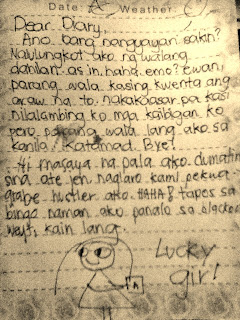 Date Weather:
Dear Diary,
Ano bang nangyayari sakin?
Nalulungkot ako ng walang
dahilan. as in. haha. emo? ewan,
parang wala kasing kwenta ang
araw na to. nakakaasar pa kasi
nilalambing ko mga kaibigan ko
pero parang wala lang ako sa
kanila. Katamad. Bye!
Hi masaya na pala ako dumating
sina ate jen, naglaro kami
grabe hustler ako. HAHA tapos sa
bingo naman ako panalo sa
wait, kain lang.
Lucky
girl!
A